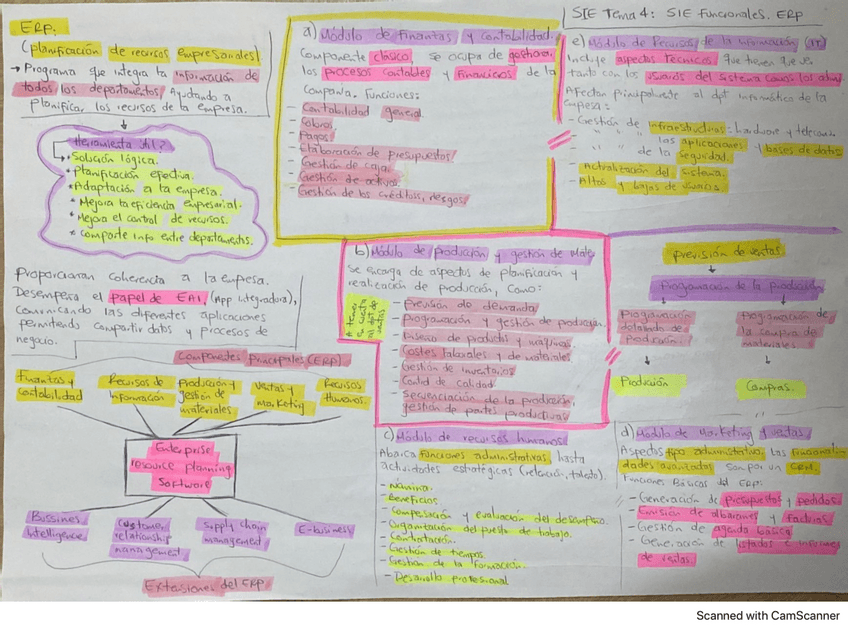 SIE Tema 4: SIE Funcionales. ERP
ERP.
(planificación de recursos empresariales).
→ Programa que integra la información de
todos los departamentos. Ayudando a
planifica, los recursos de la empresa.
Herramienta útil?
Solución lógica.
* Planificación efectiva.
* Adaptación a la empresa.
* Mejora la eficiencia empresarial.
* Mejora el control de recursos.
* Comparte info entre departamentos.
Proporcionan coherencia a la empresa.
Desempeña el papel de EAI, (App Integradora),
comunicando las diferentes aplicaciones
permitendo compartir datos y procesos de
negocio.
Componetes principales (ERP)
Finanzas y
contabilidad
Recursos de
Información
Producción y
gestión de
materiales
Ventas y
Marketing
Recursos
Humanos.
Enterprise
resource planning
Software
Bussines
intelligence
Customer
relationship
management
Supply chain
management
E-business
Extensiones del ERP
a) Módulo de finantas y contabilidad.
Componente clásico, se ocupa de gestionar
los procesos contables y financieros de la
Compañia. Funciones:
- Contabilidad general
- Cobros
- Pagos
- Elaboración de presupuestos
- Gestión de caja
- Gestión de activos
- Gestión de los créditos, riesgos
b) Módulo de producción y gestión de Mate
Se encarga de aspectos de planificación y
realización de producción, como:
- Previsión de demanda
- Programación y gestión de producción
- Diseño de productos y máquinas
- Costes laborales y de materiales
- Gestión de inventarios
- Contol de calidad
- Secuenciación de la producción,
gestión de partes productivas
c) Módulo de recursos humanos
Abarca funciones administrativas, hasta
actividades estratégicas (retención, talento).
- Nómina.
- Beneficios.
- Compensación y evaluación del desempeño.
- Organización del puesto de trabajo.
- Contratación.
- Gestión de tiempos.
- Gestión de la formación.
- Desarrollo profesional
e) Módulo de Recursos de la información (IT)
Incluye aspectos técnicos que tienen que ver
tanto con los usuarios del sistema como los
Afectan principalmente al dpt informático de la
empresa:
- Gestión de infraestructuras: hardware y
- " " " las aplicaciones y bases de datos
- " " de la seguridad.
- Actualización del sistema.
- Altas y bajas de usuario
Previsión de ventas
Programación de la producción
Programación
de
producción
Programación de
la compra de
materiales
Producción
Compras.
d) Módulo de Marketing y ventas
Aspectos tipo administrativo. Las funcionali
dades avanzadas son por un CRM.
Funciones Básicas del ERP:
- Generación de presupuestos y pedidos
- Emisión de albaranes y facturas
- Gestión de agenda básica
- Generación de listados e informes
de ventas.
Scanned with CamScanner